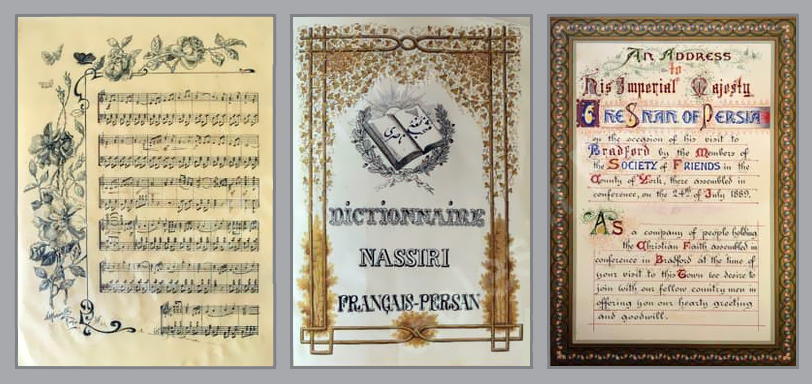 DICTIONNAIRE
NASSIRI
FRANÇAIS-PERSAN
An Address
to
His Imperial Majesty
The Shah of Persia
on the occasion of his visit to
Bradford by the Members of
the Society of Friends in the
County of York, there assembled in
conference, on the 24th of July 1889.
As a company of people holding
the Christian Faith assembled in
conference in Bradford at the time of
your visit to this Town we desire to
join with our fellow country men in
offering you our hearty greeting
and goodwill.